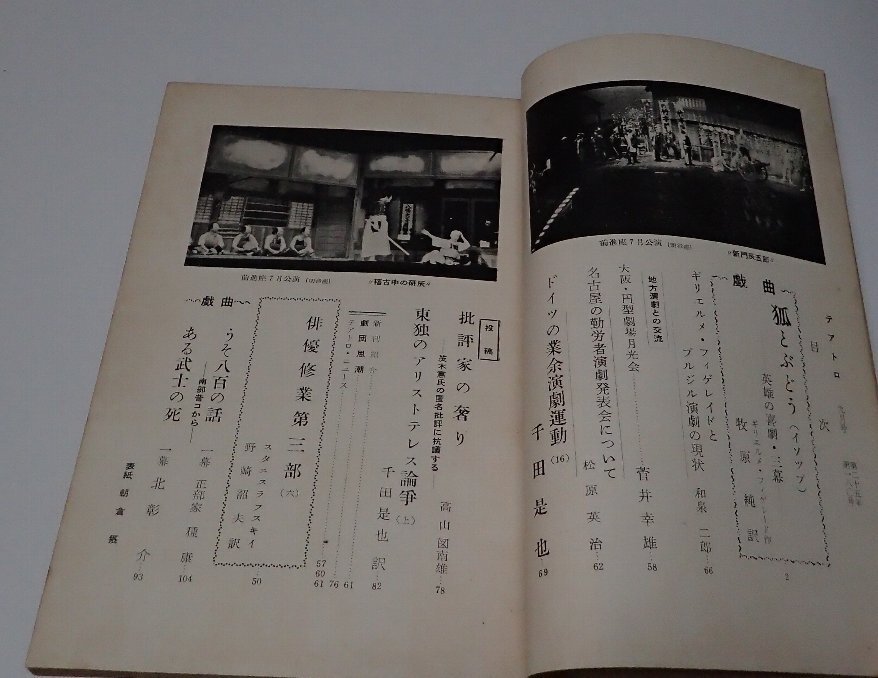 テアトロ
目次
戯曲
狐とぶどう(イソップ)
英雄の喜劇・三幕
ギリエルメ・フィゲレイド作
牧原純訳
2
ギリエルメ・フィゲレイドと
ブルジル演劇の現状
和泉二郎
66
地方演劇との交流
大阪・円型劇場月光会
菅井幸雄
58
名古屋の勤労者演劇発表会について
松原英治
62
ドイツの業余演劇運動(16)
千田是也
69
前進座7月公演
〃新門辰五郎〃
投稿
批評家の奢り
茨木憲氏の匿名批評に抗議する
高山図南雄
78
東独のアリストテレス論争(上)
千田是也訳
82
新刊紹介
劇団思潮
テアトロ・ニュース
61
76
61
60
57
俳優修業第三部(六)
スタニスラフスキイ
野崎韶夫訳
50
戯曲
うそ八百の話
南部昔コから
一幕
104
ある武士の死
一幕
北彰介
93
表紙 朝倉摂
前進座7月公演
〃稽古中の研辰〃